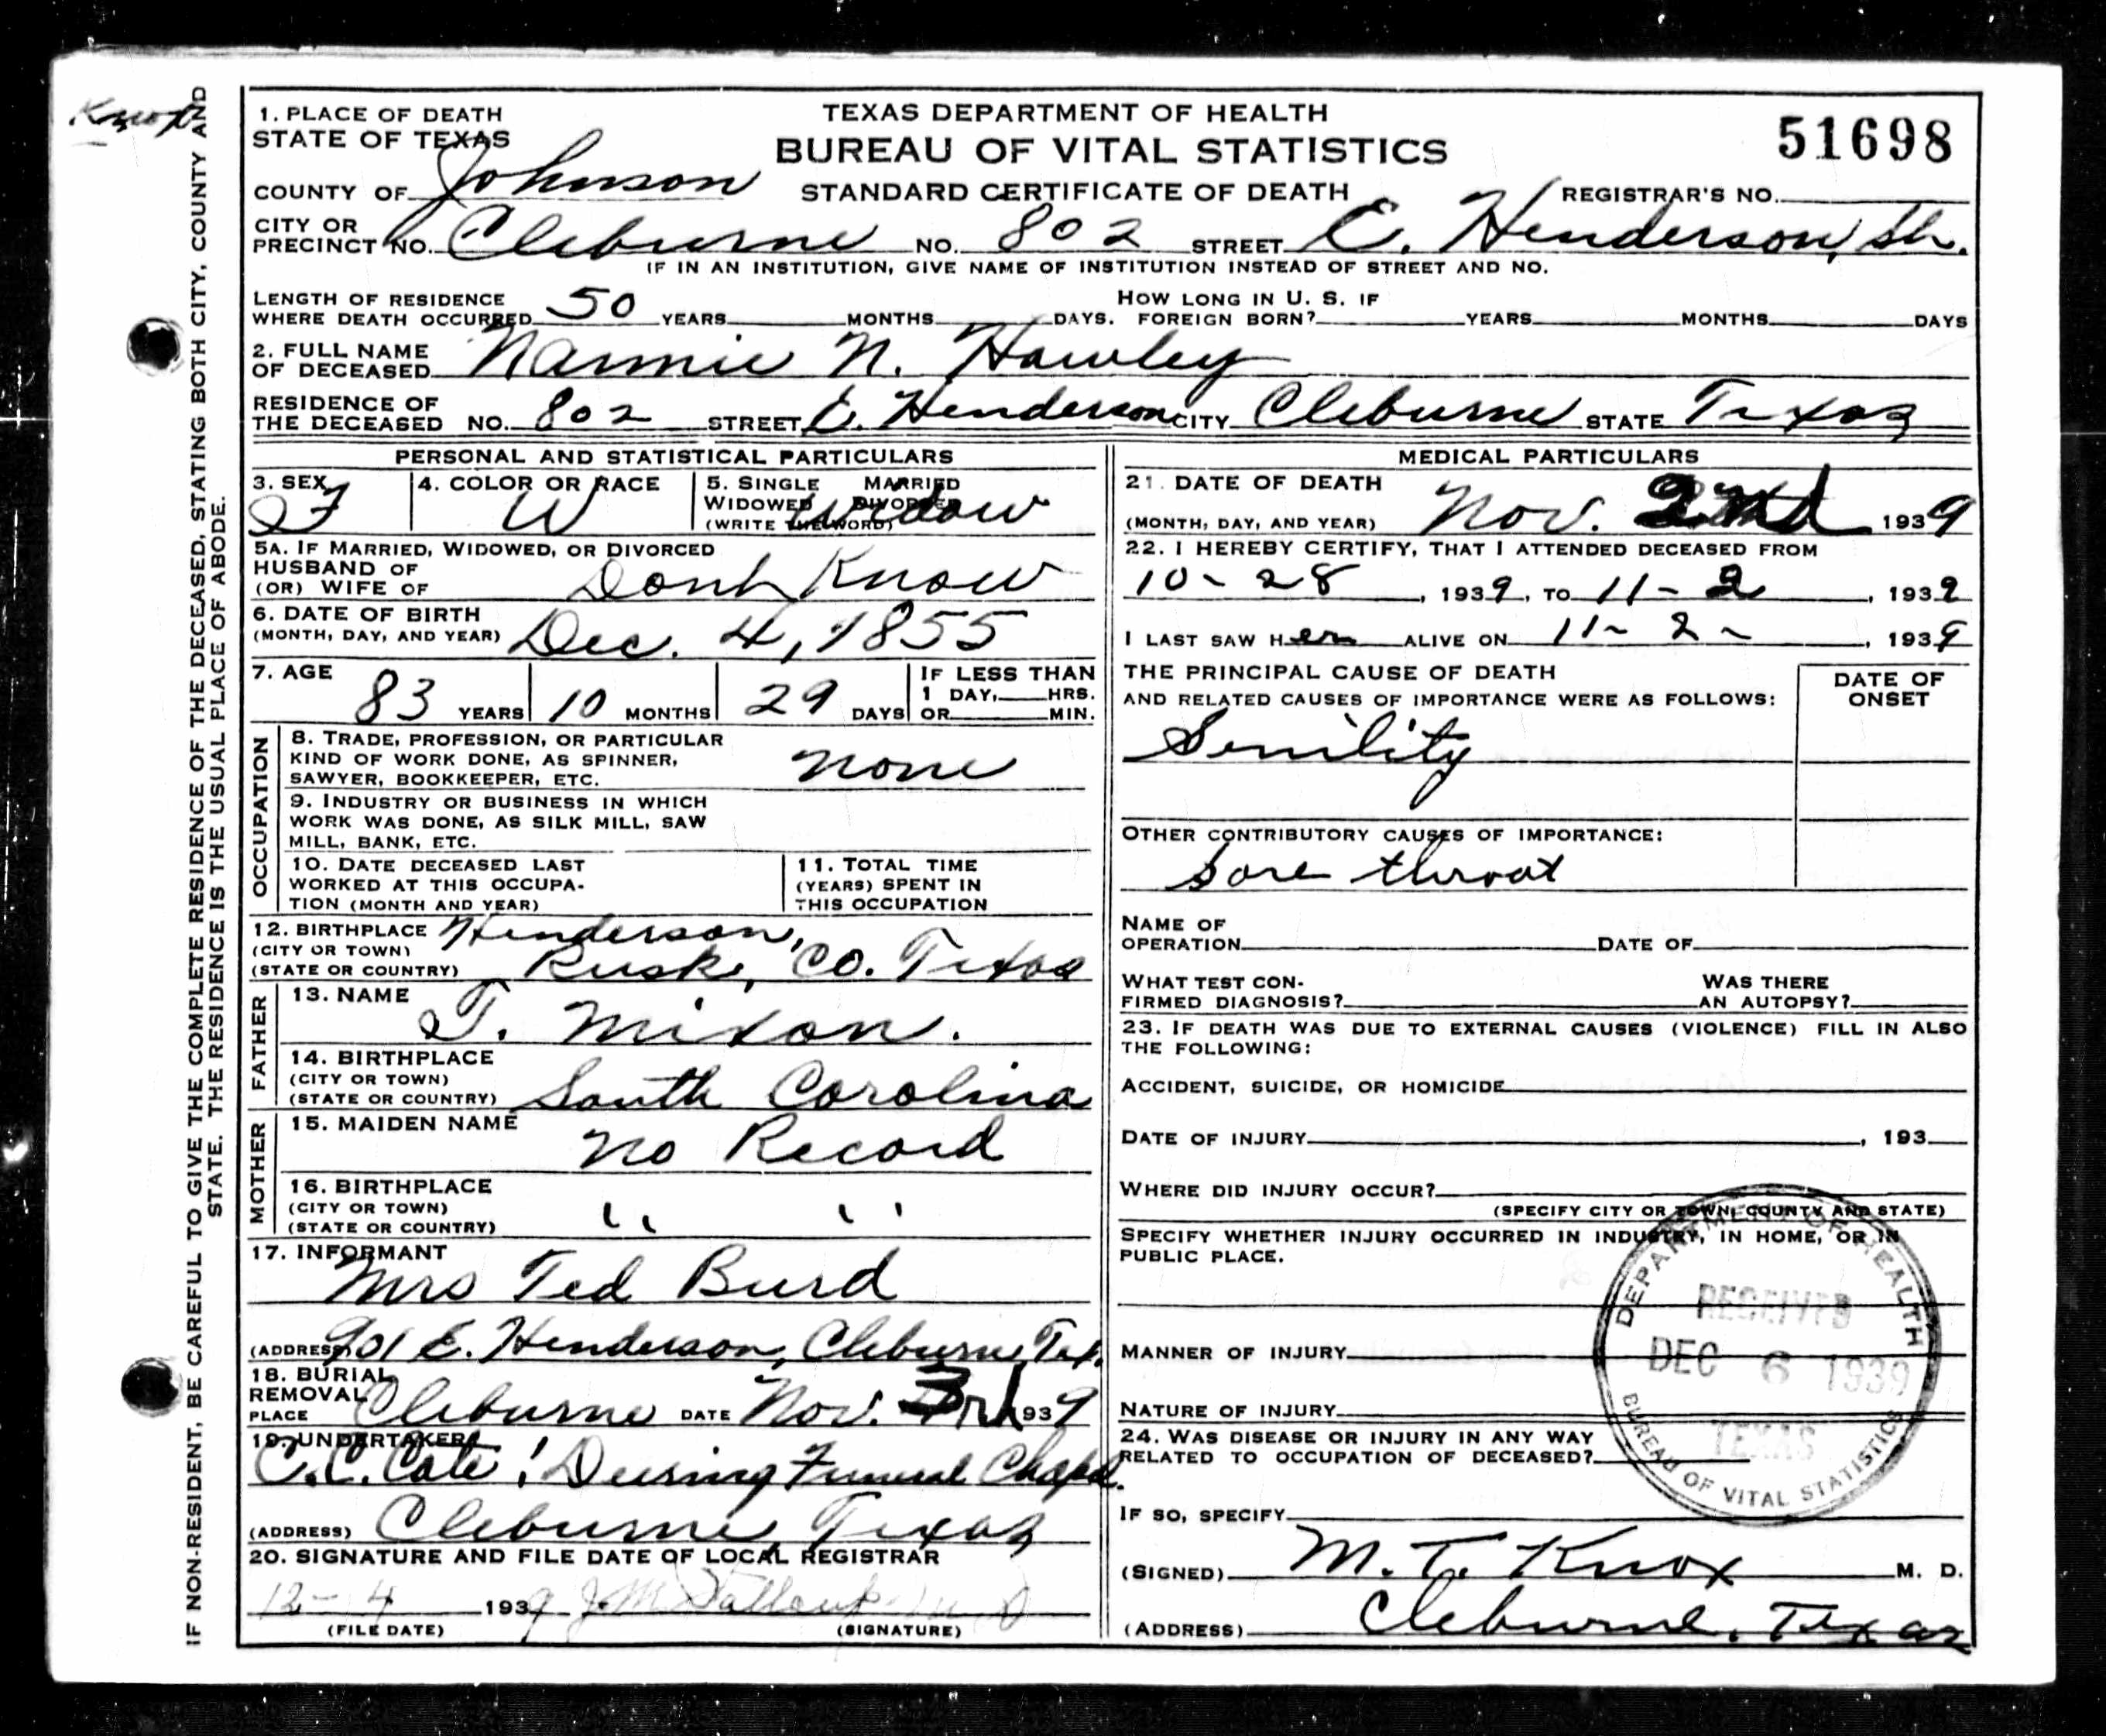 Knox
IF NON-RESIDENT, BE CAREFUL TO GIVE THE COMPLETE RESIDENCE OF THE DECEASED, STATING BOTH CITY, COUNTY AND
STATE. THE RESIDENCE IS THE USUAL PLACE OF ABODE.
1. PLACE OF DEATH
STATE OF TEXAS
TEXAS DEPARTMENT OF HEALTH
BUREAU OF VITAL STATISTICS
51698
COUNTY OF Johnson STANDARD CERTIFICATE OF DEATH REGISTRAR'S NO.
CITY OR
PRECINCT NO. Cleburne NO. 802 STREET E. Henderson, St.
IF IN AN INSTITUTION, GIVE NAME OF INSTITUTION INSTEAD OF STREET AND NO.
LENGTH OF RESIDENCE
WHERE DEATH OCCURRED 50 YEARS MONTHS DAYS.
HOW LONG IN U. S. IF
FOREIGN BORN? YEARS MONTHS DAYS
2. FULL NAME
OF DECEASED Nannie N. Hawley
RESIDENCE OF
THE DECEASED NO. 802 STREET E. Henderson CITY Cleburne STATE Texas
PERSONAL AND STATISTICAL PARTICULARS
3. SEX F
4. COLOR OR RACE W
5. SINGLE MARRIED
WIDOWED DIVORCED
(WRITE THE WORD) Widow
5A. IF MARRIED, WIDOWED, OR DIVORCED
HUSBAND OF
(OR) WIFE OF Dont Know
6. DATE OF BIRTH
(MONTH, DAY, AND YEAR) Dec. 4, 1855
7. AGE 83 YEARS 10 MONTHS 29 DAYS
IF LESS THAN
1 DAY, HRS.
OR MIN.
OCCUPATION
8. TRADE, PROFESSION, OR PARTICULAR
KIND OF WORK DONE, AS SPINNER,
SAWYER, BOOKKEEPER, ETC. none
9. INDUSTRY OR BUSINESS IN WHICH
WORK WAS DONE, AS SILK MILL, SAW
MILL, BANK, ETC.
10. DATE DECEASED LAST
WORKED AT THIS OCCUPA-
TION (MONTH AND YEAR)
11. TOTAL TIME
(YEARS) SPENT IN
THIS OCCUPATION
12. BIRTHPLACE Henderson,
(CITY OR TOWN)
(STATE OR COUNTRY) Rusk, Co. Texas
FATHER
13. NAME T. Mixon.
14. BIRTHPLACE
(CITY OR TOWN)
(STATE OR COUNTRY) South Carolina
MOTHER
15. MAIDEN NAME No Record
16. BIRTHPLACE
(CITY OR TOWN)
(STATE OR COUNTRY) " "
17. INFORMANT
Mrs Ted Burd
(ADDRESS) 901 E. Henderson, Cleburne, Tex.
18. BURIAL
REMOVAL
PLACE Cleburne DATE Nov. 3rd 1939
19. UNDERTAKER
C.C. Cate, Deering Funeral Chapel.
(ADDRESS) Cleburne, Texas
20. SIGNATURE AND FILE DATE OF LOCAL REGISTRAR
12-4 1939 J.M.
(FILE DATE) (SIGNATURE)
MEDICAL PARTICULARS
21. DATE OF DEATH
(MONTH, DAY, AND YEAR) Nov. 2nd 1939
22. I HEREBY CERTIFY, THAT I ATTENDED DECEASED FROM
10-28, 1939, TO 11-2, 1939
I LAST SAW HER ALIVE ON 11-2-, 1939
THE PRINCIPAL CAUSE OF DEATH
AND RELATED CAUSES OF IMPORTANCE WERE AS FOLLOWS:
DATE OF
ONSET
Senility
OTHER CONTRIBUTORY CAUSES OF IMPORTANCE:
Sore throat
NAME OF
OPERATION DATE OF
WHAT TEST CON-
FIRMED DIAGNOSIS?
WAS THERE
AN AUTOPSY?
23. IF DEATH WAS DUE TO EXTERNAL CAUSES (VIOLENCE) FILL IN ALSO
THE FOLLOWING:
ACCIDENT, SUICIDE, OR HOMICIDE
DATE OF INJURY , 193
WHERE DID INJURY OCCUR?
(SPECIFY CITY OR TOWN, COUNTY AND STATE)
SPECIFY WHETHER INJURY OCCURRED IN INDUSTRY, IN HOME, OR IN
PUBLIC PLACE.
MANNER OF INJURY
NATURE OF INJURY
24. WAS DISEASE OR INJURY IN ANY WAY
RELATED TO OCCUPATION OF DECEASED?
IF SO, SPECIFY
(SIGNED) M. T. Knox M. D.
(ADDRESS) Cleburne, Texas
DEPARTMENT OF HEALTH
RECEIVED
DEC 6 1939
TEXAS
BUREAU OF VITAL STATISTICS